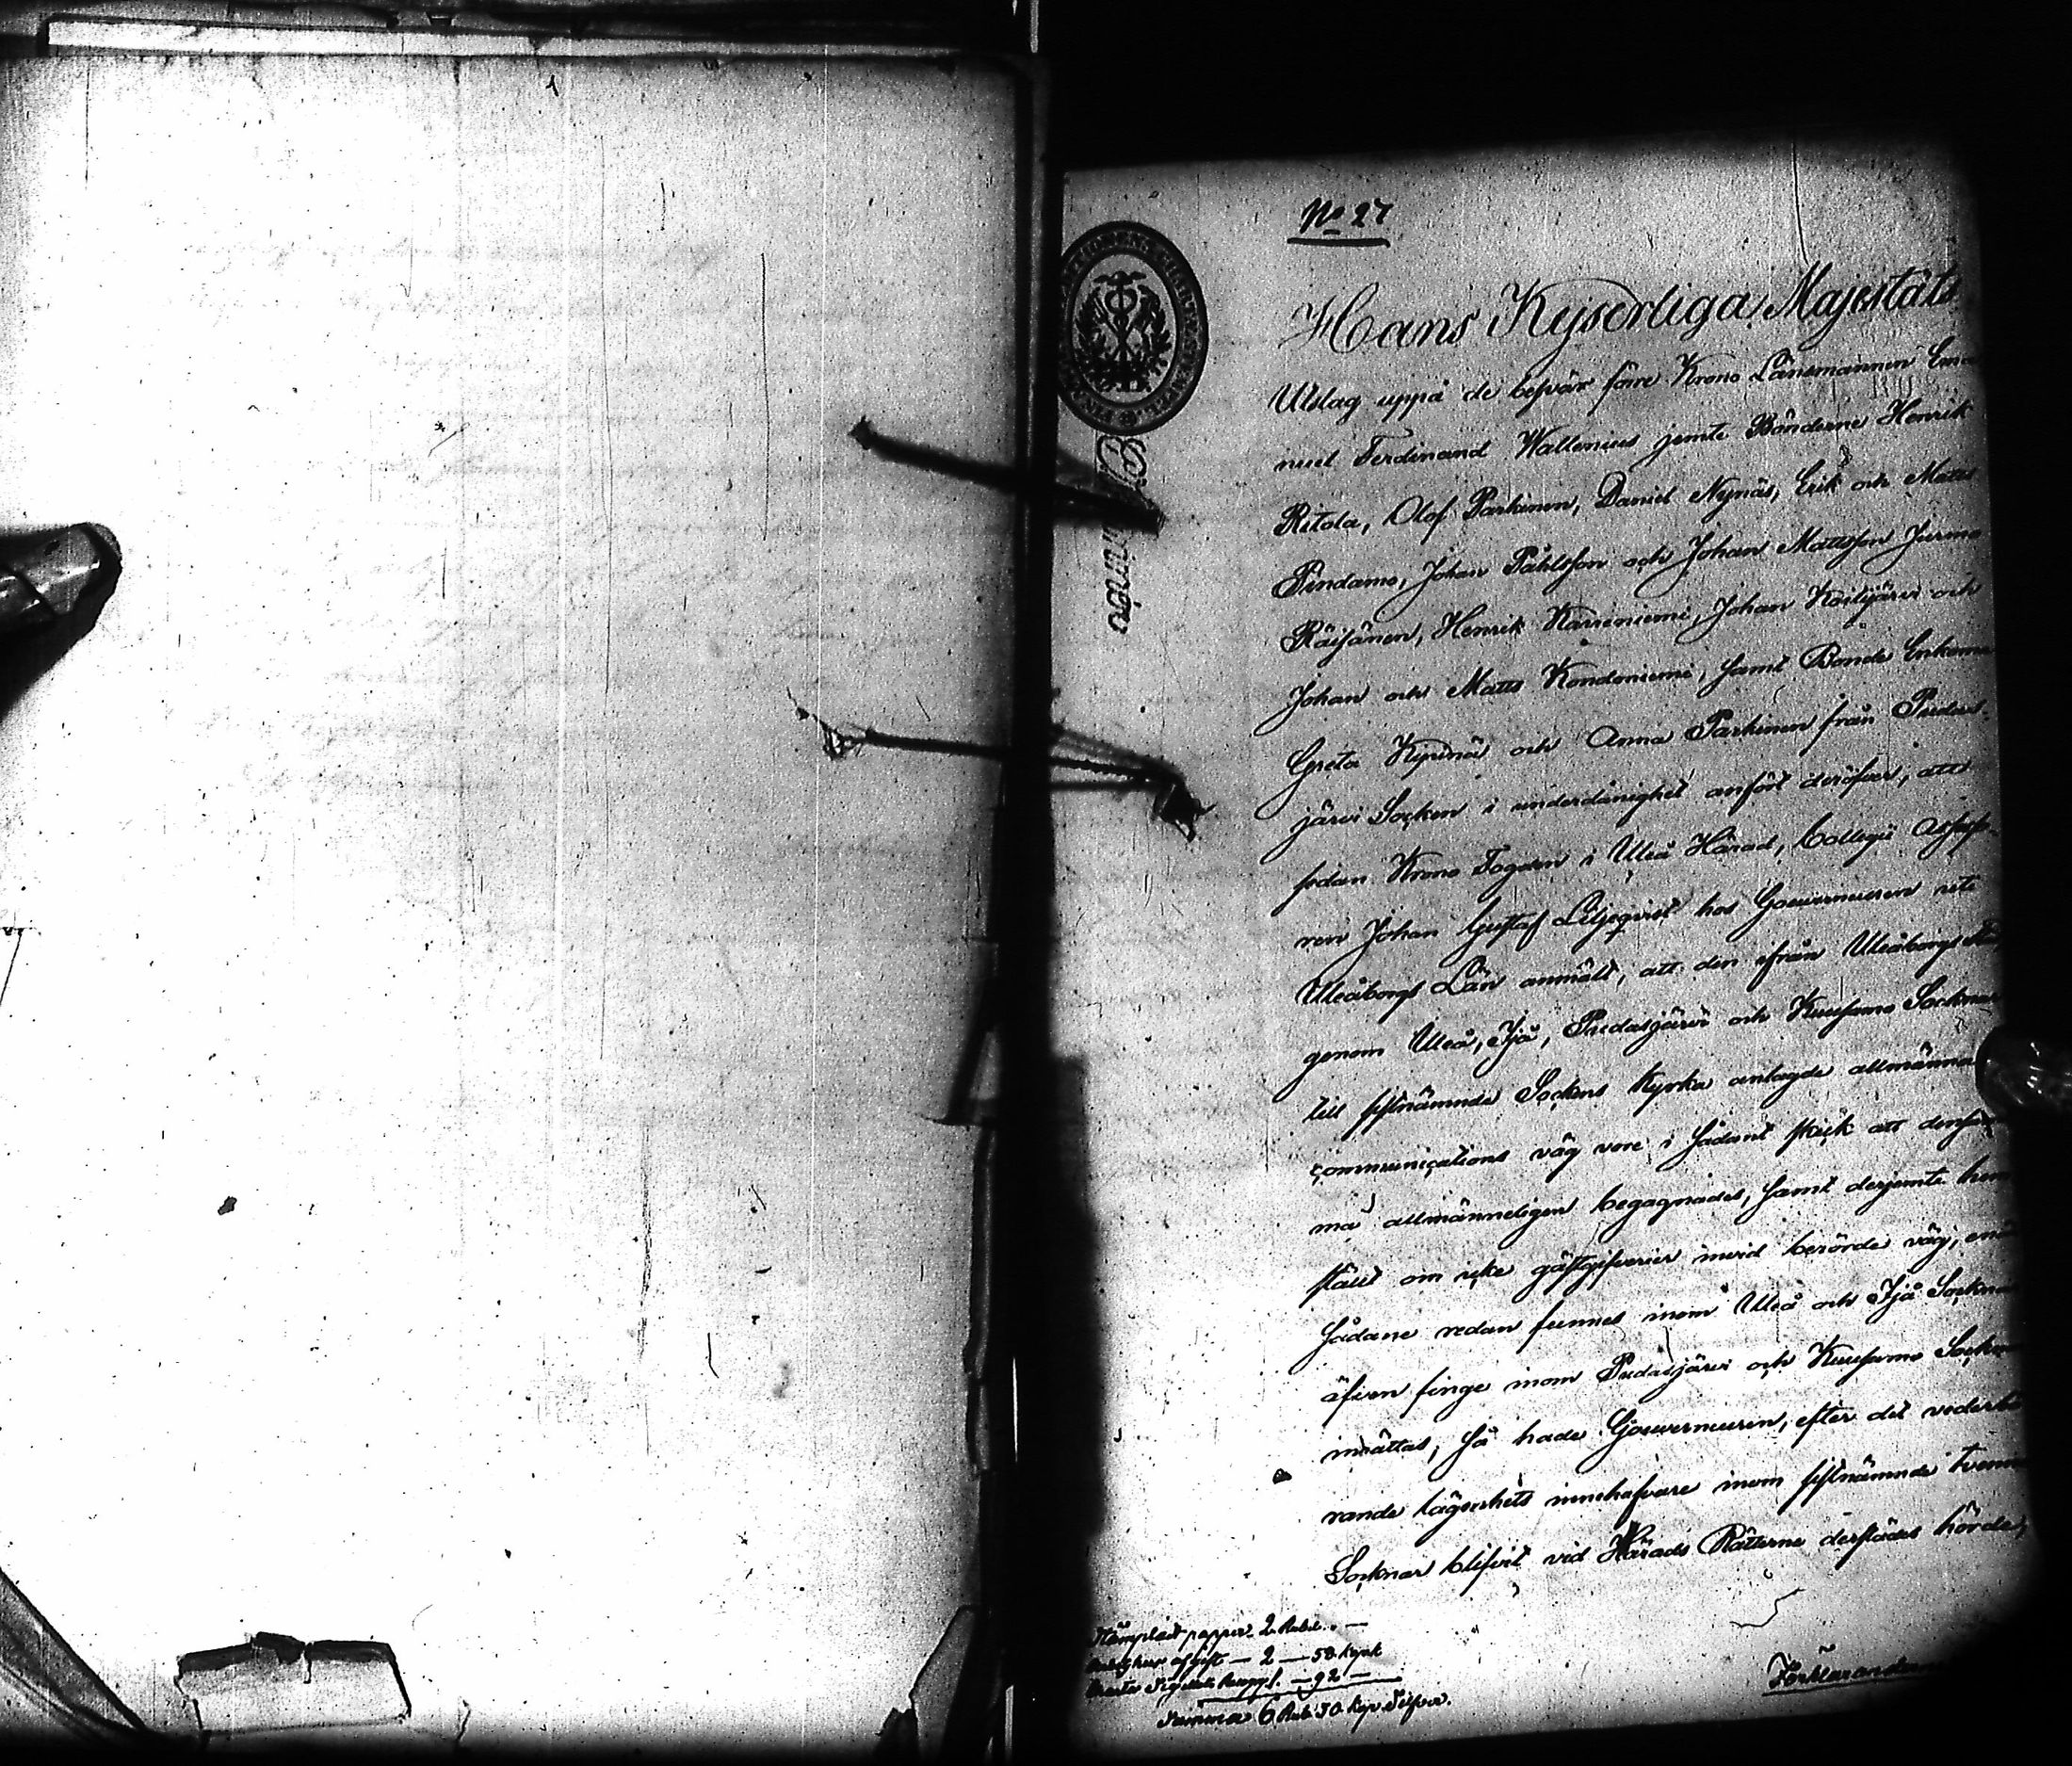 No 27
Hans Kejserliga Majestäts
Utslag uppå de besvär förre Krono Länsmannen Ema
nuel Ferdinand Wallenius jemte Bönderne Henrik
Ritola, Olof Parkinen, Daniel Nynäs, Erik och Matts
Pindamo, Johan Påhlsson och Johan Mattsson Jurmo
Räisänen, Henrik Karriniemi, Johan Koilijärvi och
Johan och Matts Kondoniemi, samt Bonde Enkorna
Greta Kipinä och Anna Parkinen från Pudas-
järvi Socken i underdånighet anfört deröfver, att
sedan Krono Fogden i Uleå Härad, Collegii Assess-
ren Johan Gustaf Liljeqvist hos Gouverneuren uti
Uleåborgs Län anmält, att den ifrån Uleåborgs Stad
genom Uleå, Ijå, Pudasjärvi och Kuusamo Socknar
till sistnämnde Sockens Kyrka anlagde allmänna
communications väg vore i sådant skick att densam
ma allmänneligen begagnades, samt derjemte hem
stält om icke gästgifverier invid berörde väg, enär
sådane redan funnes inom Uleå och Ijå Socknar
äfven finge inom Pudasjärvi och Kuusamo Sockn
inrättas, så hade Gouverneuren, efter det vederbö
rande lägenhets innehafvare inom sistnämnde tvenne
Socknar blifvit vid Härads Rätterne derstädes hörde,
Stämpladt papper 2 Rub. —
afgift — 2 — 58 kopek
— 92 —
Summa 6 Rub 50 kop Silfver.
Förklaranderne